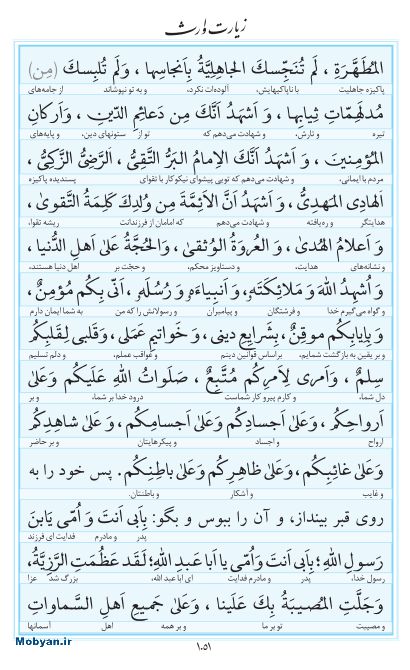 زیارت وارث
المُطَهَّرَةِ ، لَم تُنَجِّسکَ الجاهِلِیَّةُ بِاَنجاسِها ، وَلَم تُلبِسکَ (مِن)
پاکیزه جاهلیت با ناپاکیهایش، آلوده‌ات نکرد، و به تو نپوشاند از جامه‌های
مُدلَهِمّاتِ ثِیابِها ، وَ اَشهَدُ اَنَّکَ مِن دَعائِمِ الدّینِ ، وَاَرکانِ
تیره و تارش، و شهادت می‌دهم که تو از ستونهای دین، و پایه‌های
المُؤمِنینَ ، وَ اَشهَدُ اَنَّکَ الاِمامُ البَرُّ التَّقِیُّ ، الرَّضِیُّ الزَّکِیُّ ،
مردم با ایمانی، و شهادت می‌دهم که تویی پیشوای نیکوکار با تقوای پسندیده پاکیزه
الهادِی المَهدِیُّ ، وَ اَشهَدُ اَنَّ الاَئِمَّةَ مِن وُلدِکَ کَلِمَةُ التَّقوىٰ ،
هدایتگر و ره‌یافته و شهادت می‌دهم که امامان از فرزندانت ریشه تقوا،
وَ اَعلامُ الهُدىٰ ، وَ العُروَةُ الوُثقىٰ ، وَالحُجَّةُ عَلىٰ اَهلِ الدُّنیا ،
و نشانه‌های هدایت، و دستاویز محکم، و حجت بر اهل دنیا هستند،
وَ اُشهِدُ اللهَ وَ مَلائِکَتَهُ، وَ اَنبِیاءَهُ وَ رُسُلَهُ، اَنّی بِکُم مُؤمِنٌ ،
و گواه می‌گیرم خدا و فرشتگان و پیامبران و رسولانش را که من به شما ایمان دارم
وَ بِاِیابِکُم موقِنٌ، بِشَرایِعِ دینی ، وَ خَواتیمِ عَمَلی، وَقَلبی لِقَلبِکُم
و بر یقین به بازگشت شمایم، براساس قوانین دینم و عواقب عملم، و دلم تسلیم
سِلمٌ ، وَ اَمری لِاَمرِکُم مُتَّبِعٌ ، صَلَواتُ اللهِ عَلَیکُم وَ عَلىٰ
دل شما، و کارم پیرو کار شماست درود خدا بر شما، و بر
اَرواحِکُم ، وَ عَلىٰ اَجسادِکُم وَ عَلىٰ اَجسامِکُم، وَ عَلىٰ شاهِدِکُم
ارواح و اجساد و پیکرهایتان و بر حاضر
وَ عَلىٰ غائِبِکُم، وَ عَلىٰ ظاهِرِکُم وَ عَلىٰ باطِنِکُم. پس خود را به
و غایب و آشکار و باطنتان.
روی قبر بینداز، و آن را ببوس و بگو: بِاَبی اَنتَ وَ اُمّی یَابنَ
پدر و مادرم فدایت ای فرزند
رَسولِ اللهِ؛ بِاَبی اَنتَ وَ اُمّی یا اَبا عَبدِ اللهِ؛ لَقَد عَظُمَتِ الرَّزِیَّةُ،
رسول خدا، پدر و مادرم فدایت ای ابا عبد الله، بزرگ شد عزا
وَ جَلَّتِ المُصیبَةُ بِکَ عَلَینا ، وَ عَلىٰ جَمیعِ اَهلِ السَّماواتِ
و مصیبت تو بر ما و بر همه اهل آسمانها
Mobyan.ir
١٠٥١